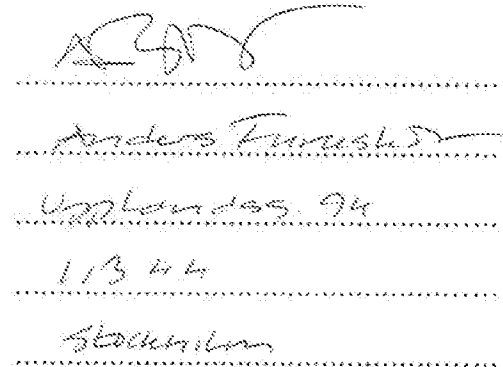 Anders Furuskär
Upplandsg. 94
113 44
Stockholm